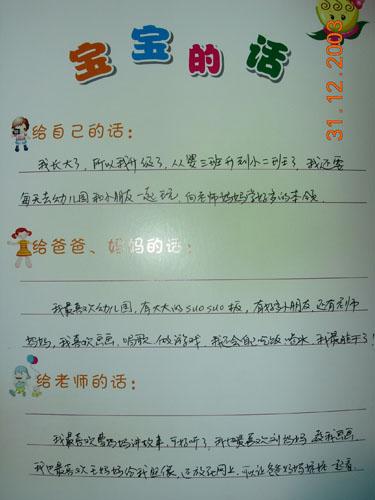 宝宝的话
31.12.2003
给自己的话：
我长大了，所以我升级了，从婴三班升到小二班了，我还要
每天去幼儿园和小朋友一起玩，向老师妈妈学好多的本领。
给爸爸、妈妈的话：
我最喜欢幼儿园，有大大的suo suo板，有好多小朋友，还有老师
妈妈，我喜欢画画，唱歌，做游戏，我还会自己吃饭喝水，我最能干了！
给老师的话：
我最喜欢 妈妈讲故事，好听了，我也最喜欢刘妈妈 我画画
我也最喜欢王妈妈给我照像，还放在网上，可以让爸爸妈妈 一起看。